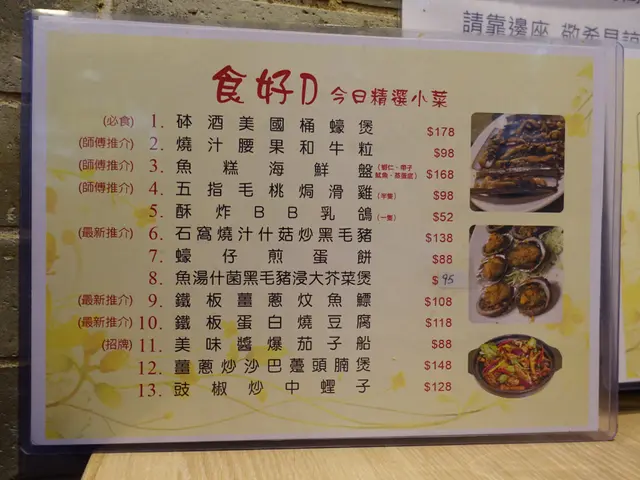 請靠邊座 敬希見諒
食好D 今日精選小菜
(必食) 1. 砵酒美國桶蠔煲 $178
(師傅推介) 2. 燒汁腰果和牛粒 $98
(師傅推介) 3. 魚糕海鮮盤 (蝦仁、帶子 魷魚、蒸蛋底) $168
(師傅推介) 4. 五指毛桃焗滑雞 (半隻) $98
5. 酥炸BB乳鴿 (一隻) $52
(最新推介) 6. 石窩燒汁什菇炒黑毛豬 $138
7. 蠔仔煎蛋餅 $88
8. 魚湯什菌黑毛豬浸大芥菜煲 $95
(最新推介) 9. 鐵板薑蔥炆魚鰾 $108
(最新推介) 10. 鐵板蛋白燒豆腐 $118
(招牌) 11. 美味醬爆茄子船 $88
12. 薑蔥炒沙巴躉頭腩煲 $148
13. 豉椒炒中蟶子 $128